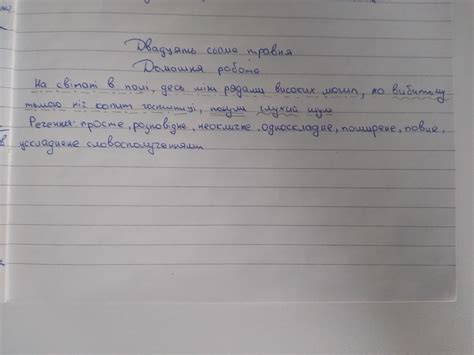 Двадцять сьоме травня
Домашня робота
На світані в полі, десь між рядами високих могил, по вибитому
тьмою під копит, почули глухий шум
Речення: просте, розповідне, неокличне, односкладне, поширене, повне,
ускладнене словосполученнями